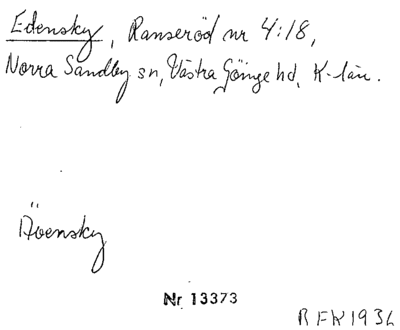 Edensky, Ranseröd nr 4:18,
Norra Sandby sn, Västra Göinge hd, K-län.
Äoensky
Nr 13373
RFK1936